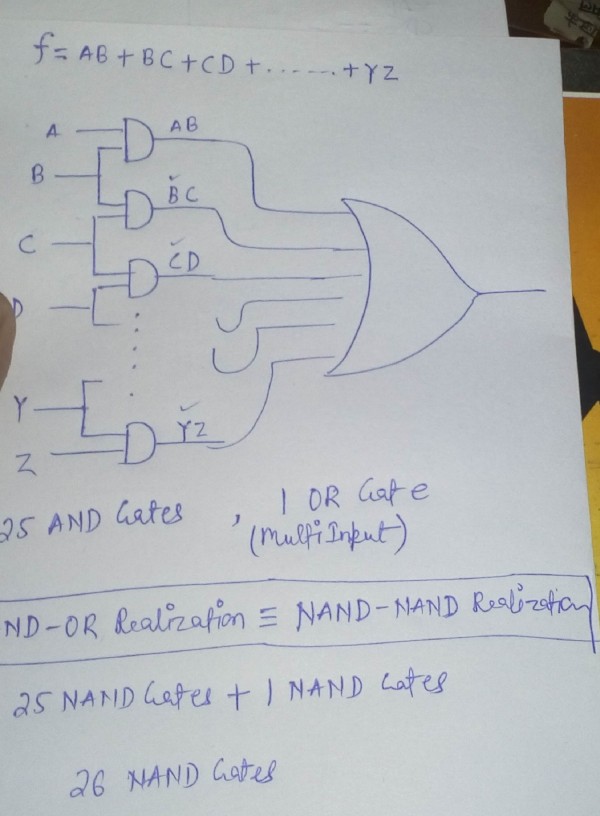 f = AB + BC + CD + ...... + YZ
A
AB
B
BC
C
CD
D
Y
YZ
Z
25 AND Gates , 1 OR Gate
(Multi Input)
ND-OR Realization ≡ NAND-NAND Realization
25 NAND Gates + 1 NAND Gates
26 NAND Gates